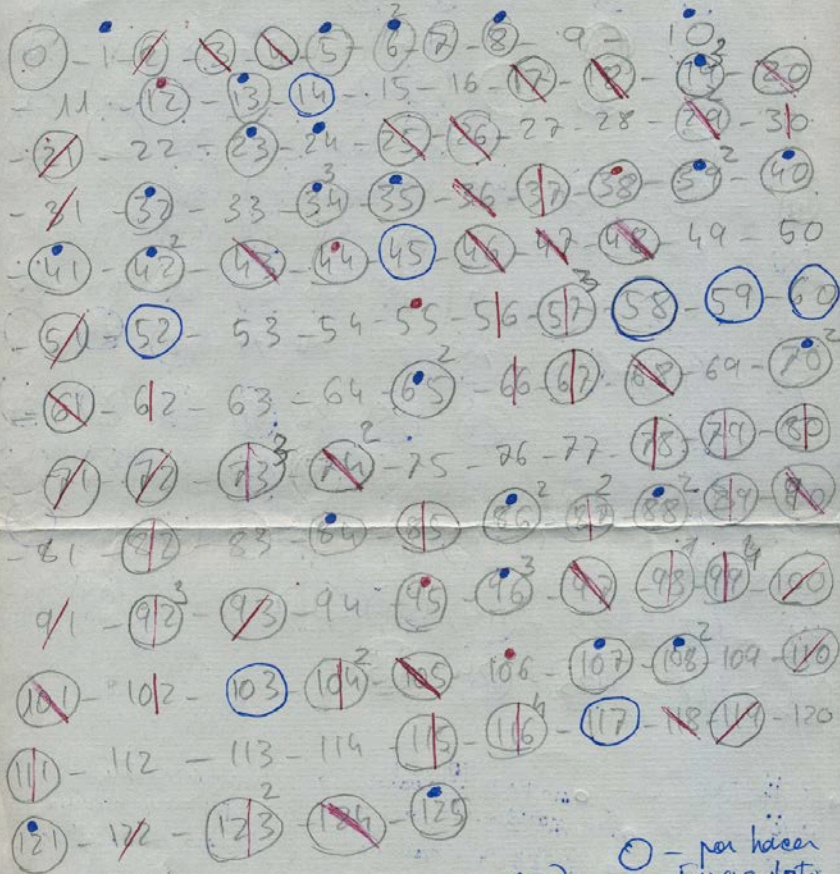 0 - 1 - 2 - 3 - 4 - 5 - 6² - 7 - 8 - 9 - 10
- 11 - 12 - 13 - 14 - 15 - 16 - 17 - 18 - 19² - 20
- 21 - 22 - 23 - 24 - 25 - 26 - 27 - 28 - 29 - 30
- 31 - 32 - 33 - 34³ - 35 - 36 - 37 - 38 - 39² - 40
- 41 - 42² - 43 - 44 - 45 - 46 - 47 - 48 - 49 - 50
- 51 - 52 - 53 - 54 - 55 - 56 - 57³ - 58 - 59 - 60
- 61 - 62 - 63 - 64 - 65² - 66 - 67 - 68 - 69 - 70²
- 71 - 72 - 73³ - 74² - 75 - 76 - 77 - 78 - 79 - 80
- 81 - 82 - 83 - 84 - 85 - 86² - 87² - 88² - 89 - 90
91 - 92³ - 93 - 94 - 95 - 96³ - 97 - 98 - 99⁴ - 100
101 - 102 - 103 - 104² - 105 - 106 - 107 - 108² - 109 - 110
111 - 112 - 113 - 114 - 115 - 116⁴ - 117 - 118 - 119 - 120
121 - 122 - 123² - 124 - 125
O - por hacer